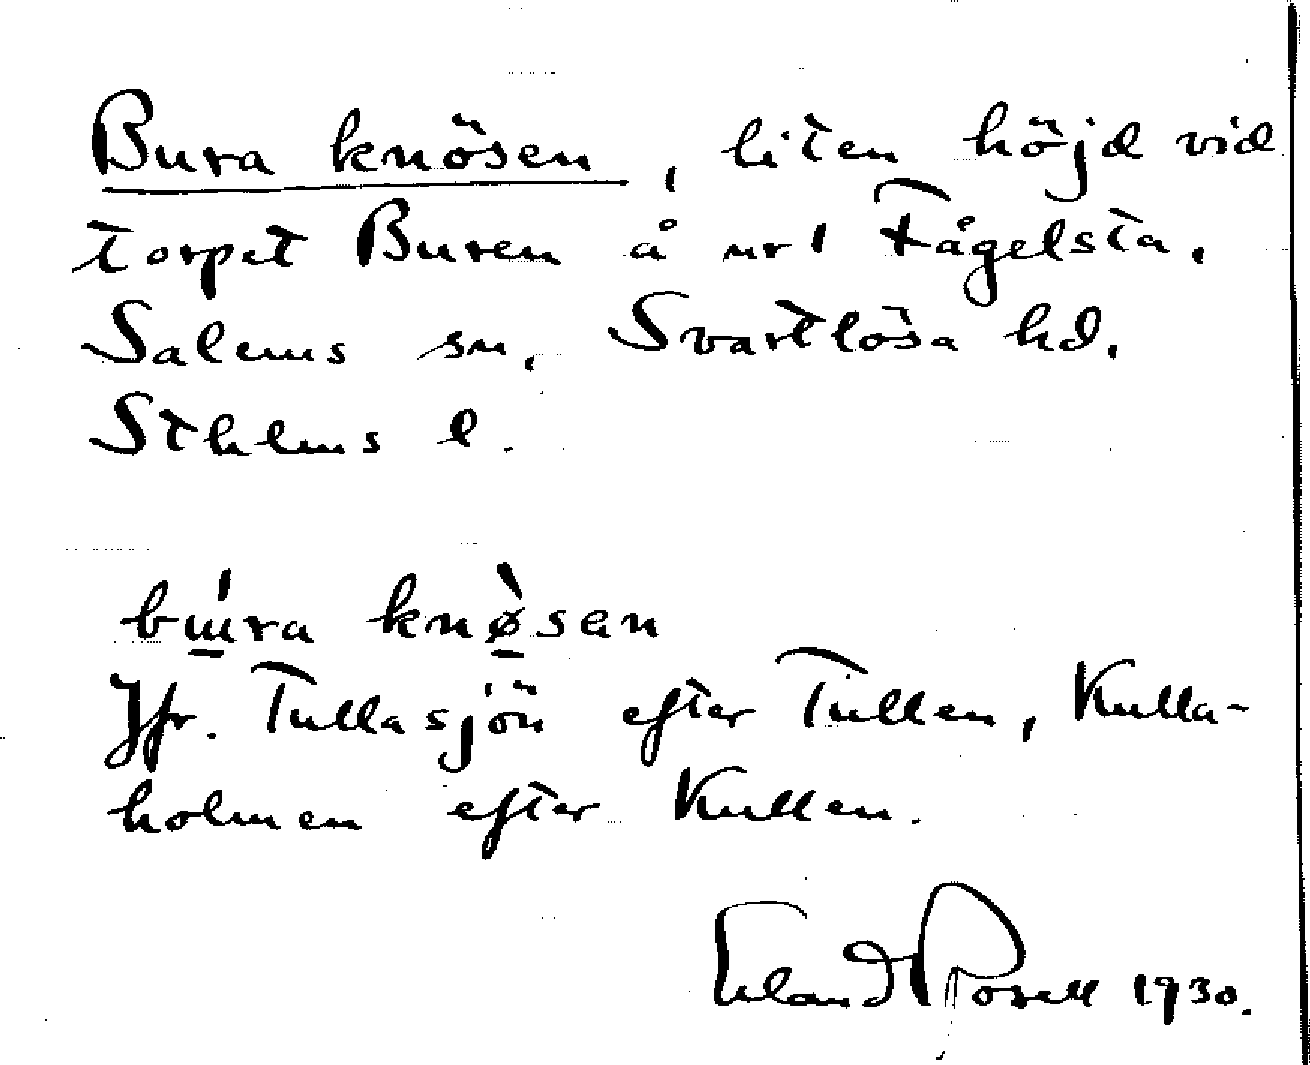 Bura knösen, liten höjd vid
torpet Buren å nr 1 Fågelsta,
Salems sn, Svartlösa hd,
Sthlms l.
bɯ́ra knø̀sen
Jfr. Tullasjön efter Tullen, Kulla-
holmen efter Kullen.
Erland Rosell 1930.